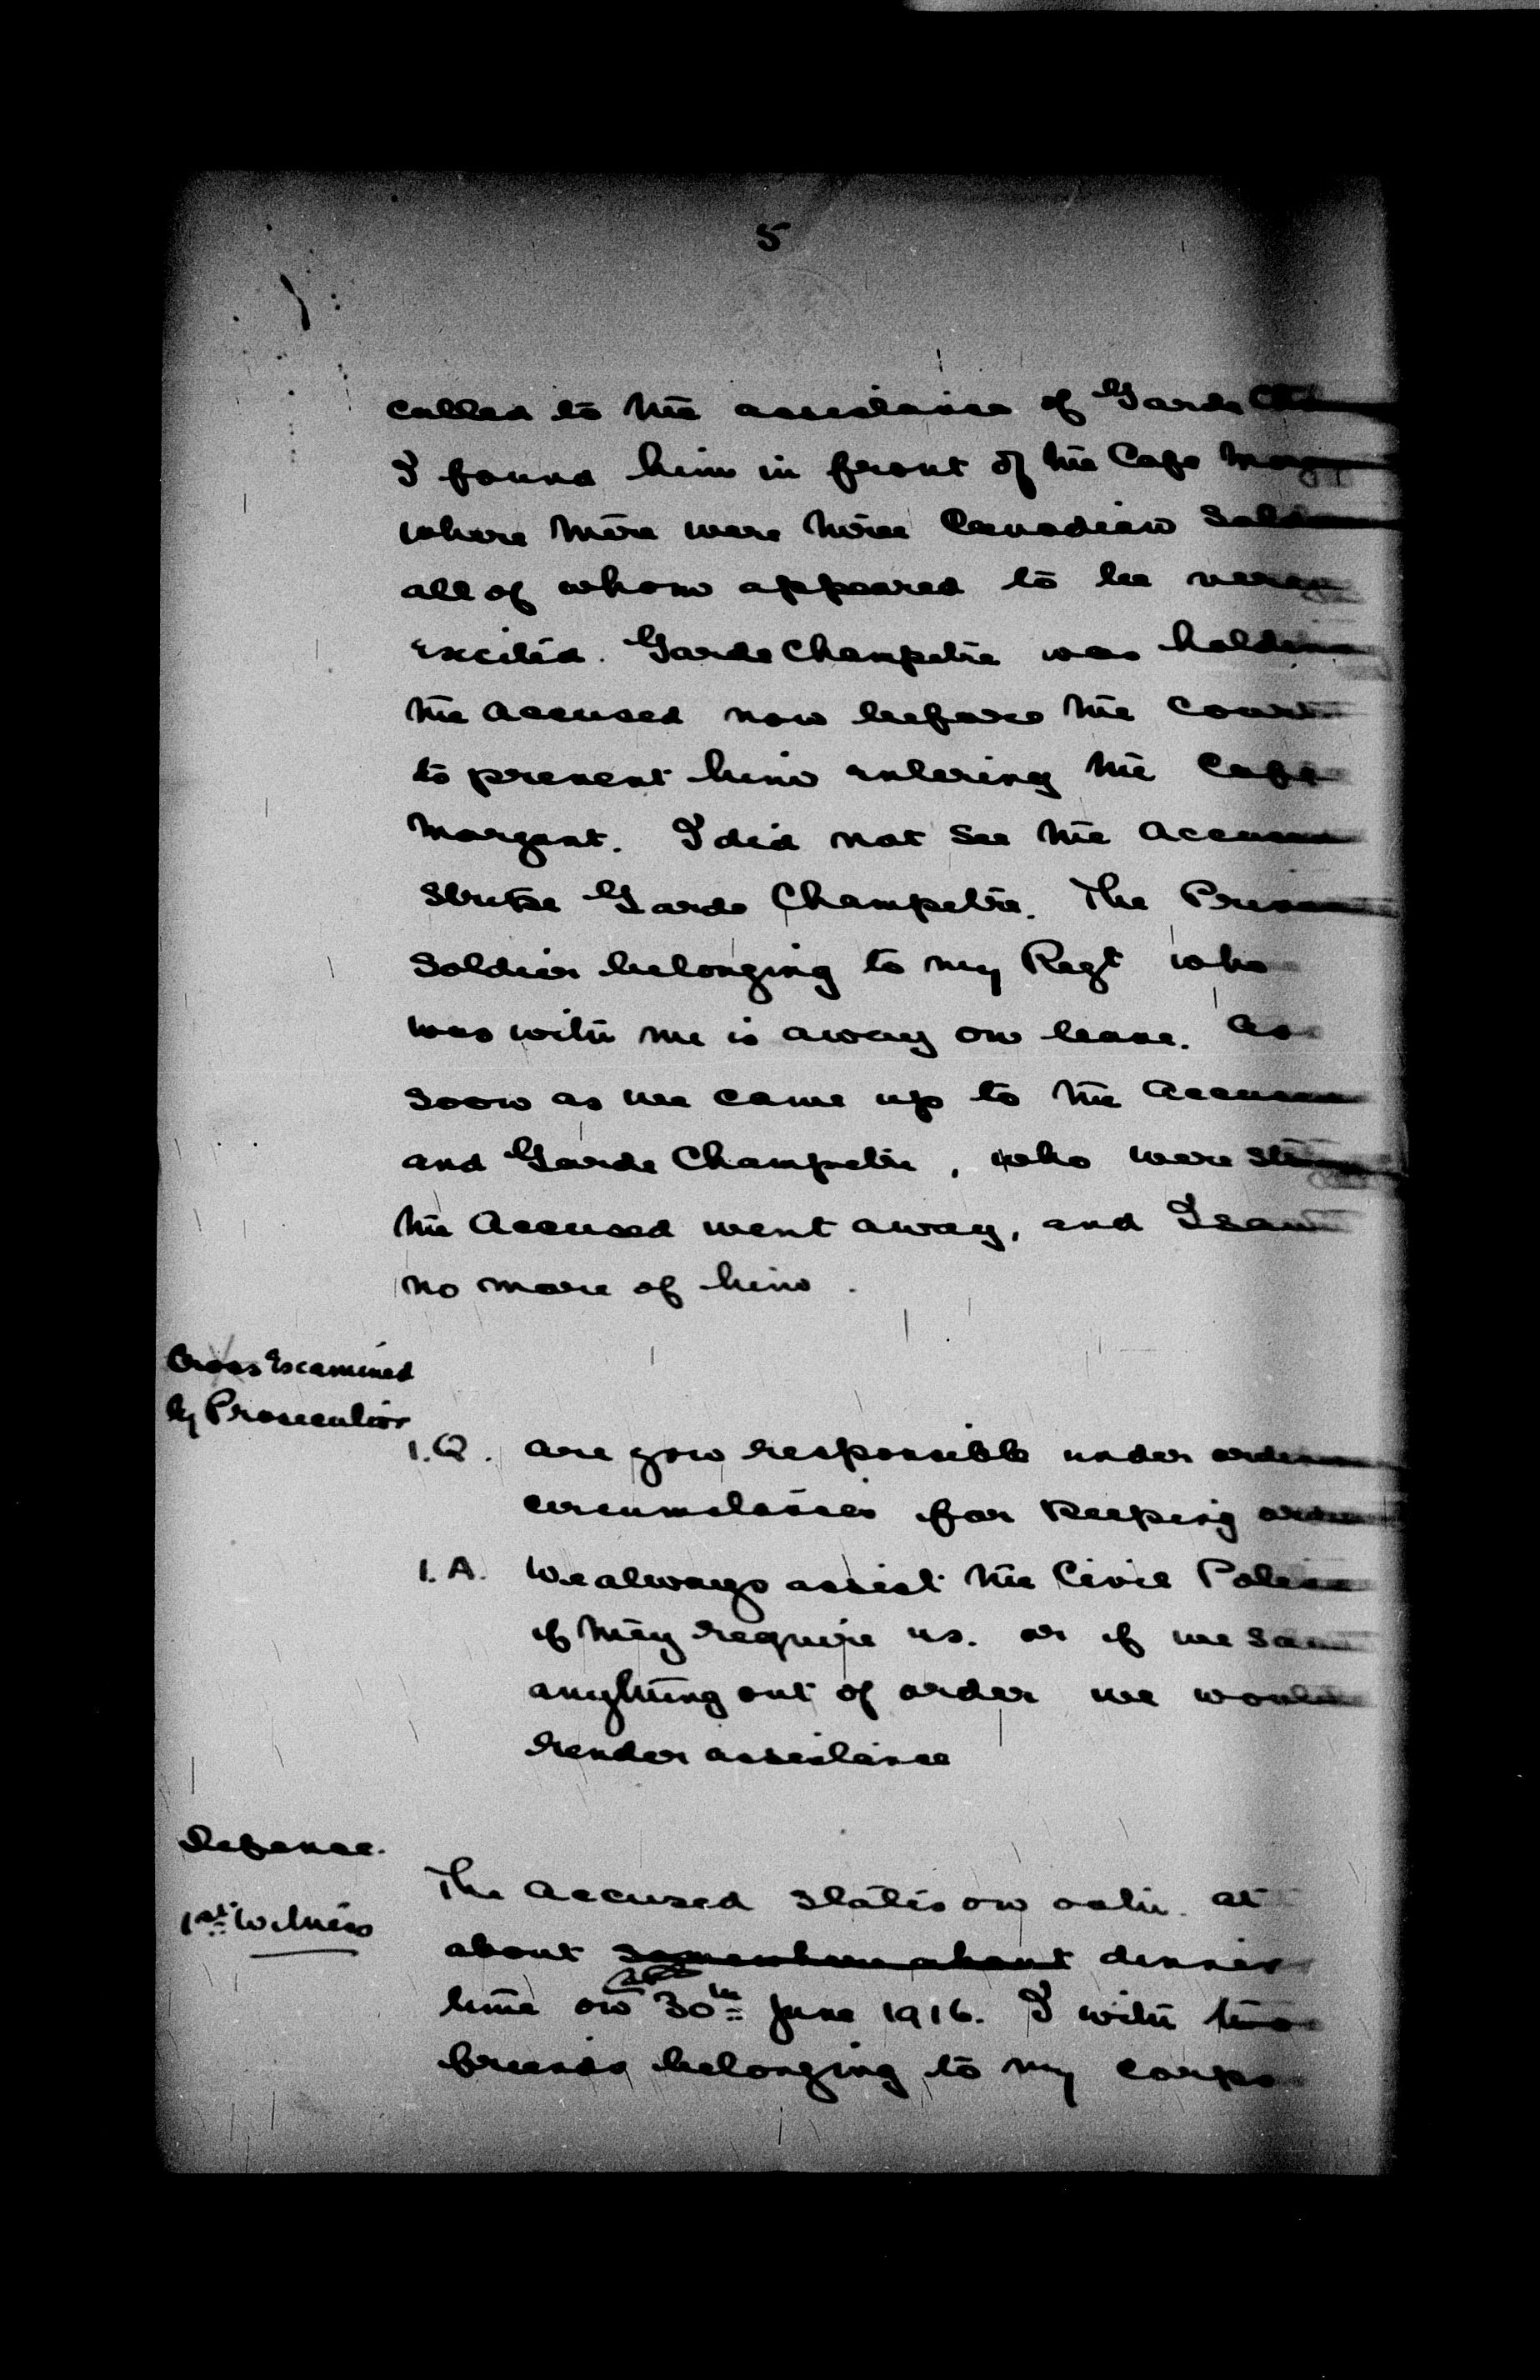 5
called to the assistance of Garde
I found him in front of the Cafe
where there were three Canadian
all of whom appeared to be very
excited. Garde Champetre was holding
the Accused now before the Court
to prevent him entering the Cafe
Margant. I did not see the Accused
strike Garde Champetre. The
Soldier belonging to my Regt who
was with me is away on leave. As
soon as we came up to the Accused
and Garde Champetre, who were
the Accused went away, and I saw
no more of him.
Cross Examined
by Prosecution
1.Q. Are you responsible under
circumstances for keeping order
1.A. We always assist the Civil Police
if they require us. or if we saw
anything out of order we would
render assistance
Defence.
1st Witness
The Accused states on oath. at
about somewhere about dinner
time on 30th June 1916. I with two
friends belonging to my corps